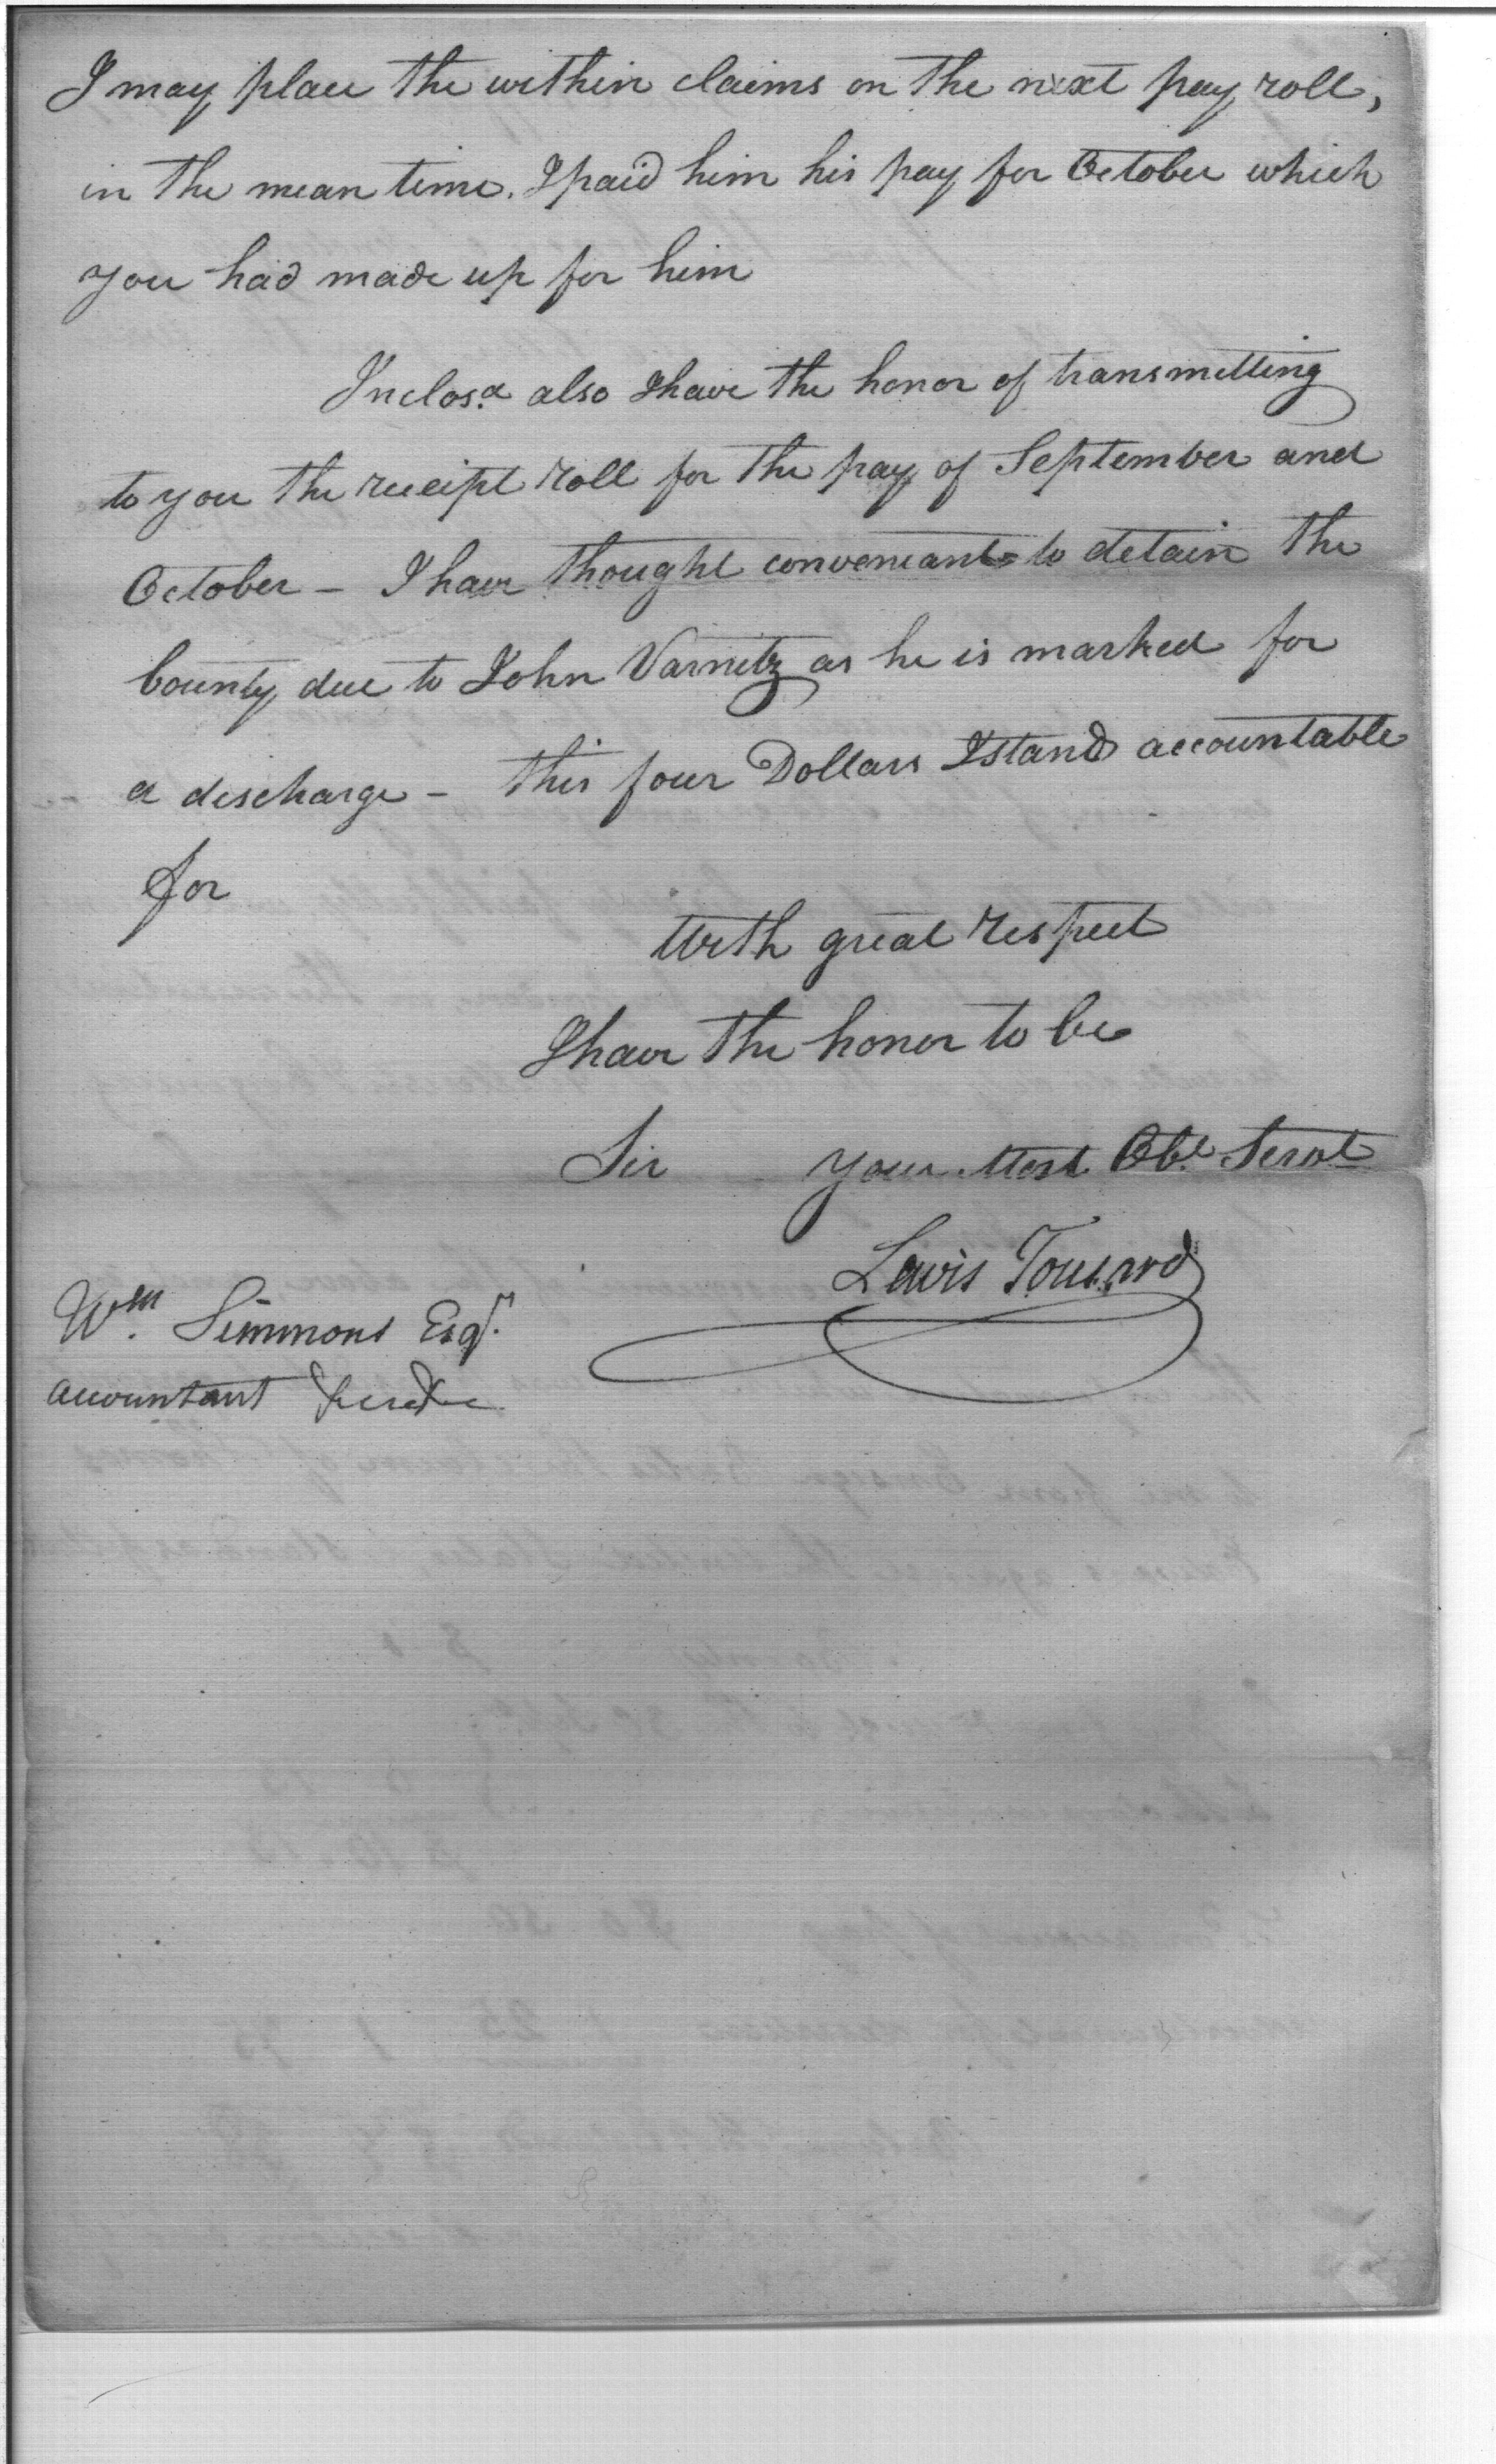 I may place the within claims on the next pay roll,
in the mean time. I paid him his pay for October which
you had made up for him
Inclos.d also I have the honor of transmitting
to you the receipt roll for the pay of September and
October - I have thought conveneant to detain the
bounty due to John Varnitz as he is marked for
a discharge - this four Dollars I stand accountable
for
With great respect
I have the honor to be
Sir your Most Obt. Servt
Lewis Tousard
Wm. Simmons Esqr.
accountant